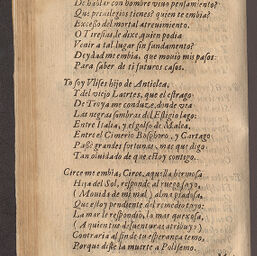 De hablar con hombre viuo pensamiento?
Que preuilegios tienes? quien te embia?
Excesso del mortal atreuimiento.
O Tiresias, le dixe, quien podia
Venir a tal lugar sin fundamento?
Deydad me embia, que mouio mis pasos
Para saber de ti futuros casos.
Yo soy Vlises hijo de Anticlea,
Y del viejo Laertes, que el estrago
De Troya me conduze, donde vea
Las negras sombras del Estigio lago.
Entre Italia, y el golfo de Malea,
Entre el Cimerio Bosphoro, y Cartago
Passè grandes fortunas, mas que digo
Tan oluidado de que estoy contigo.
Circe me embia, Circe, aquella hermosa
Hija del Sol, responde al ruego suyo,
(Mouida de mi mal) alma piadosa,
Que estoy pendiente del remedio tuyo:
La mar le respondio, la mas quexosa,
(A quien tus desuenturas atribuyo)
Contraria al fin de tu esperança temo,
Porque diste la muerte a Polifemo.